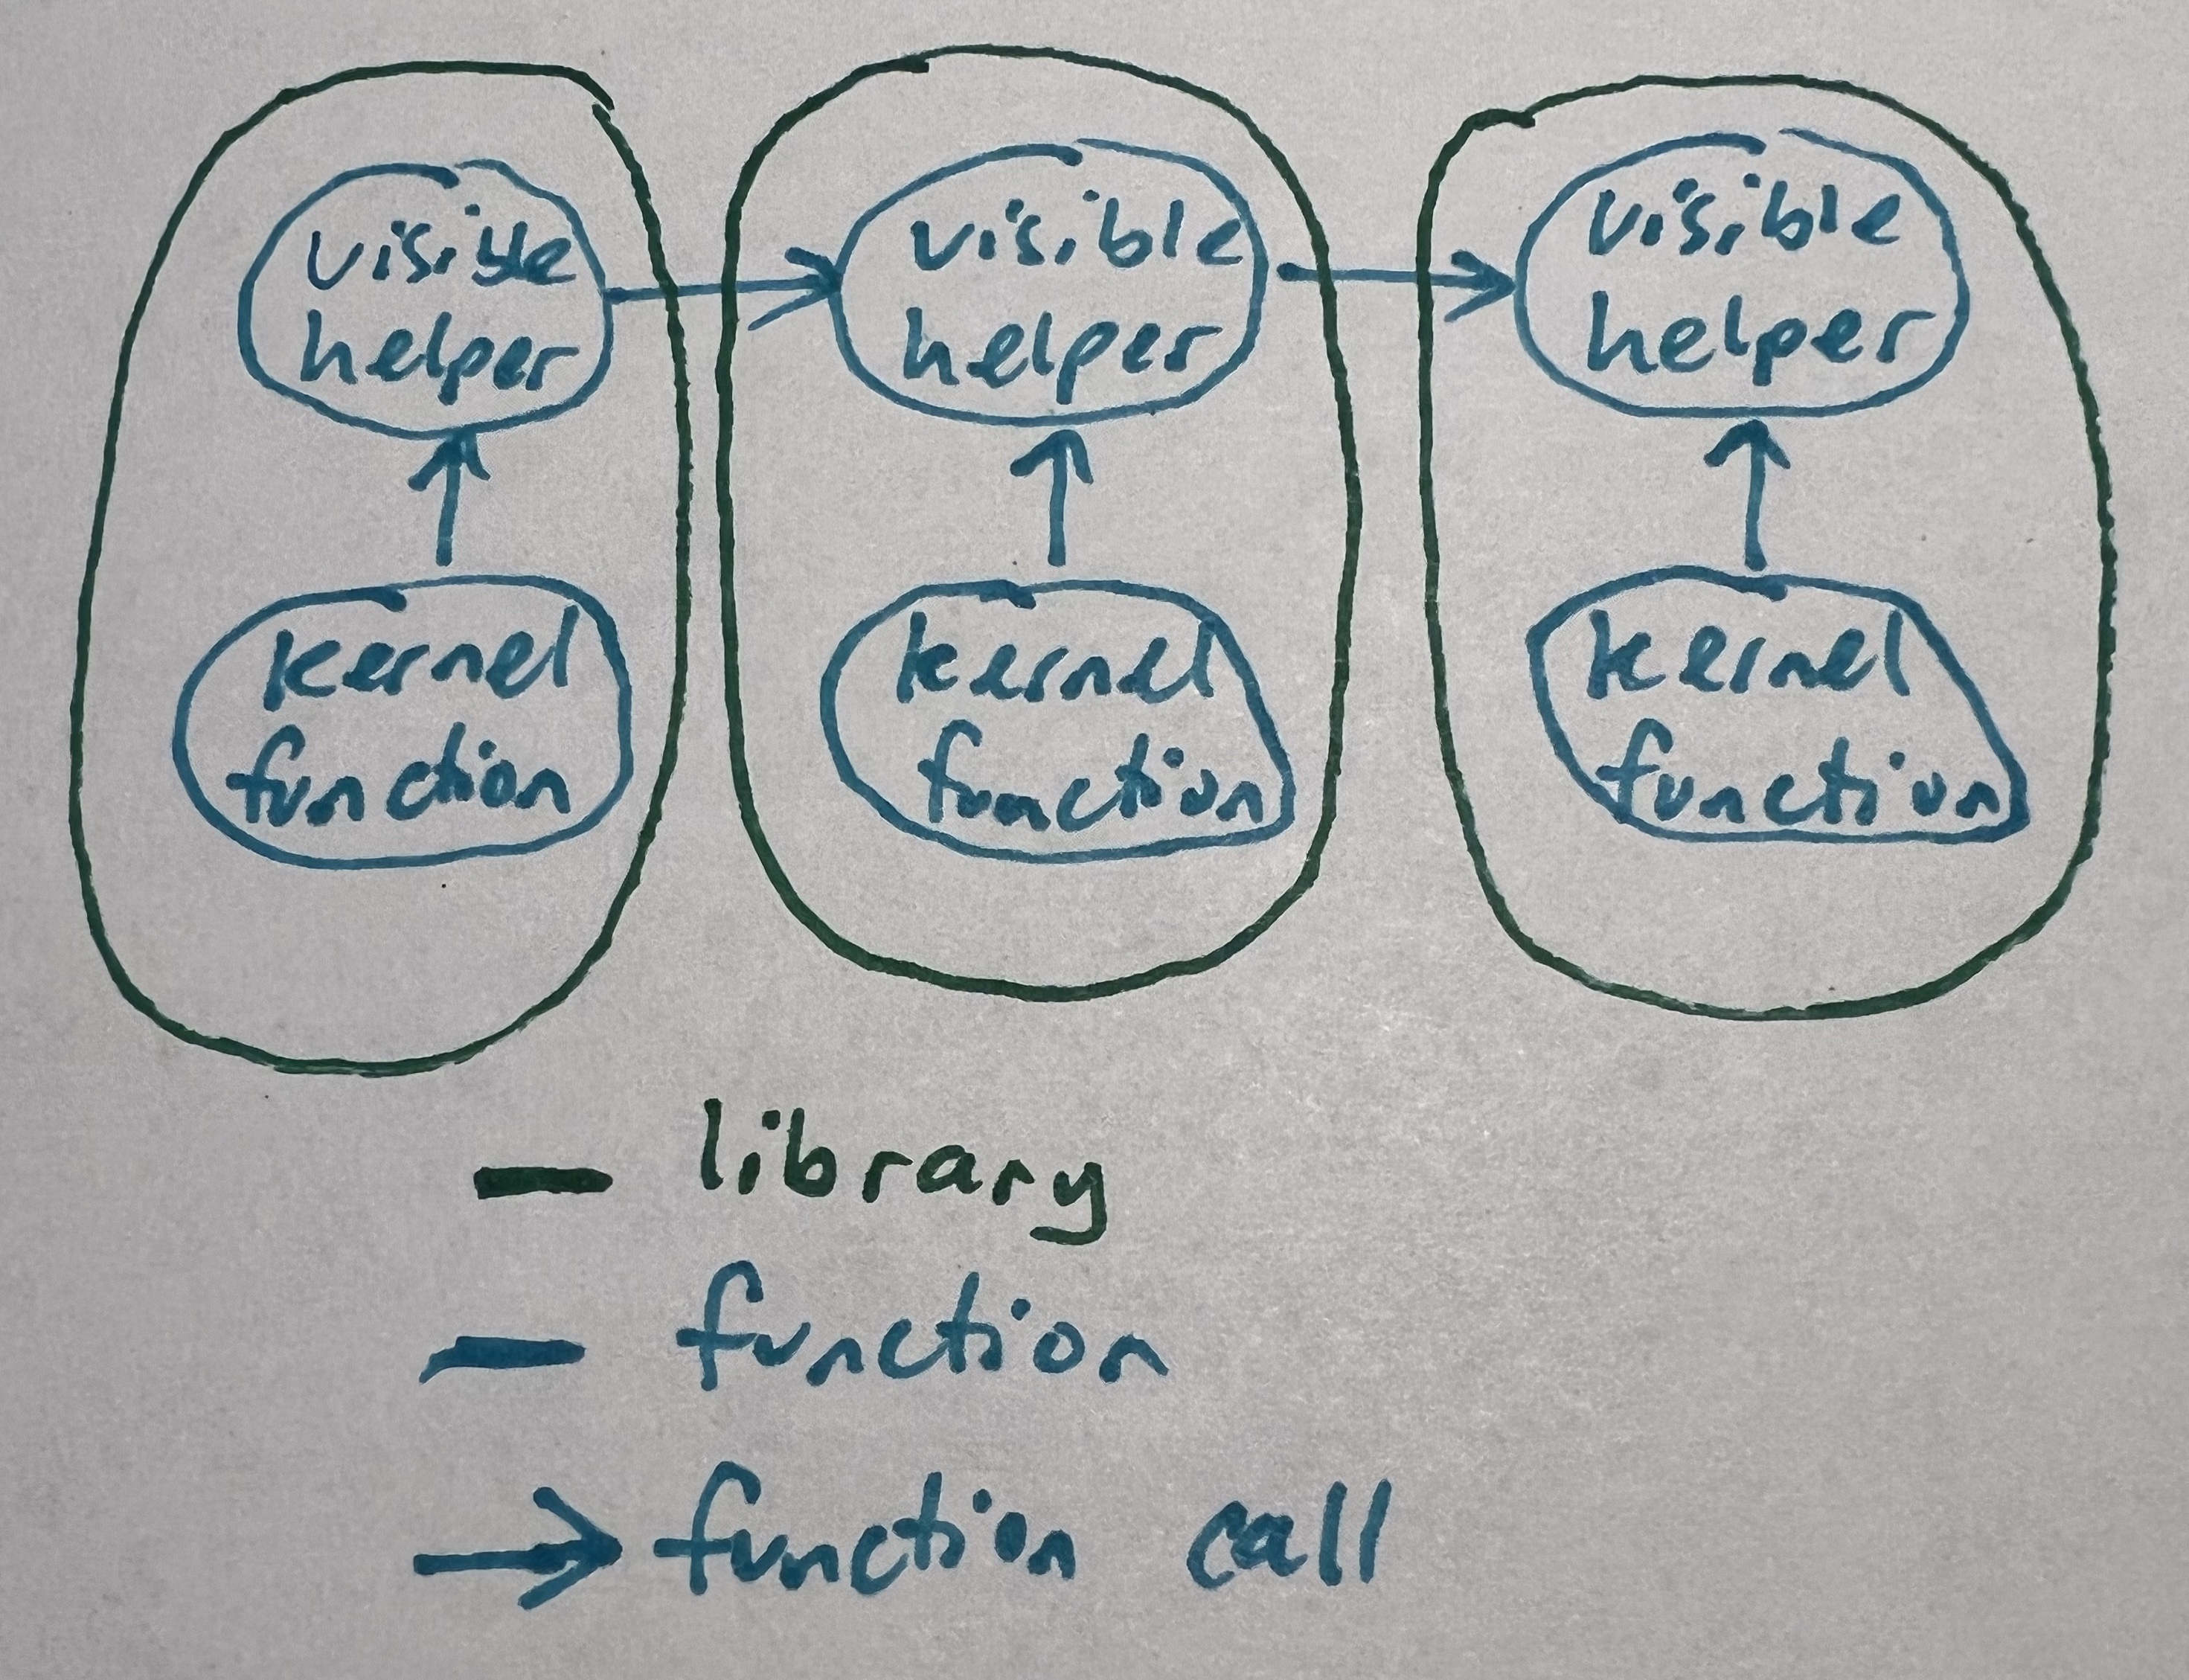 visible
helper
visible
helper
visible
helper
kernel
function
kernel
function
kernel
function
library
function
function call